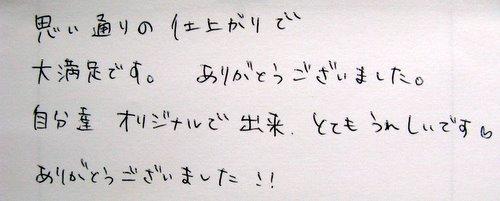 思い通りの仕上がりで
大満足です。 ありがとうございました。
自分達 オリジナルで出来、とてもうれしいです
ありがとうございました!!